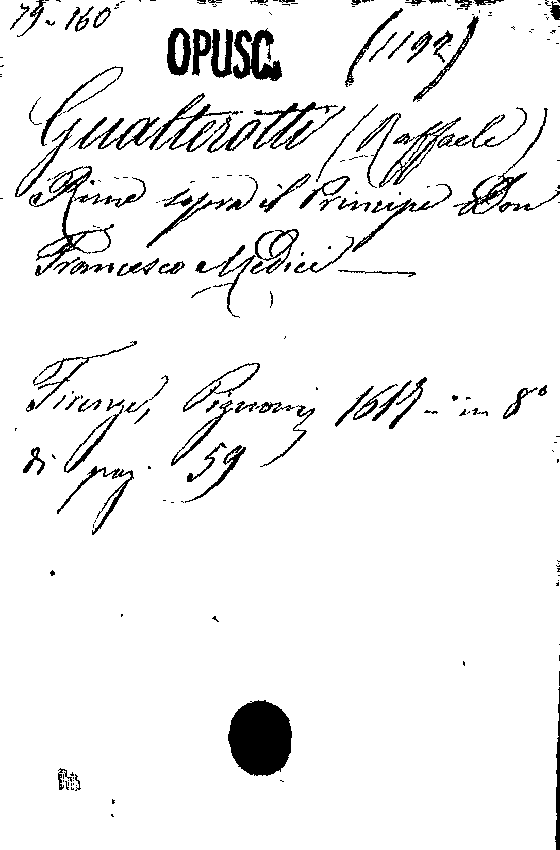 79-160
OPUSC. (1192)
Gualterotti (Raffaele)
Rime sopra il Principe Don
Francesco Medici
Firenze, Pignoni, in 8°
di pag. 59